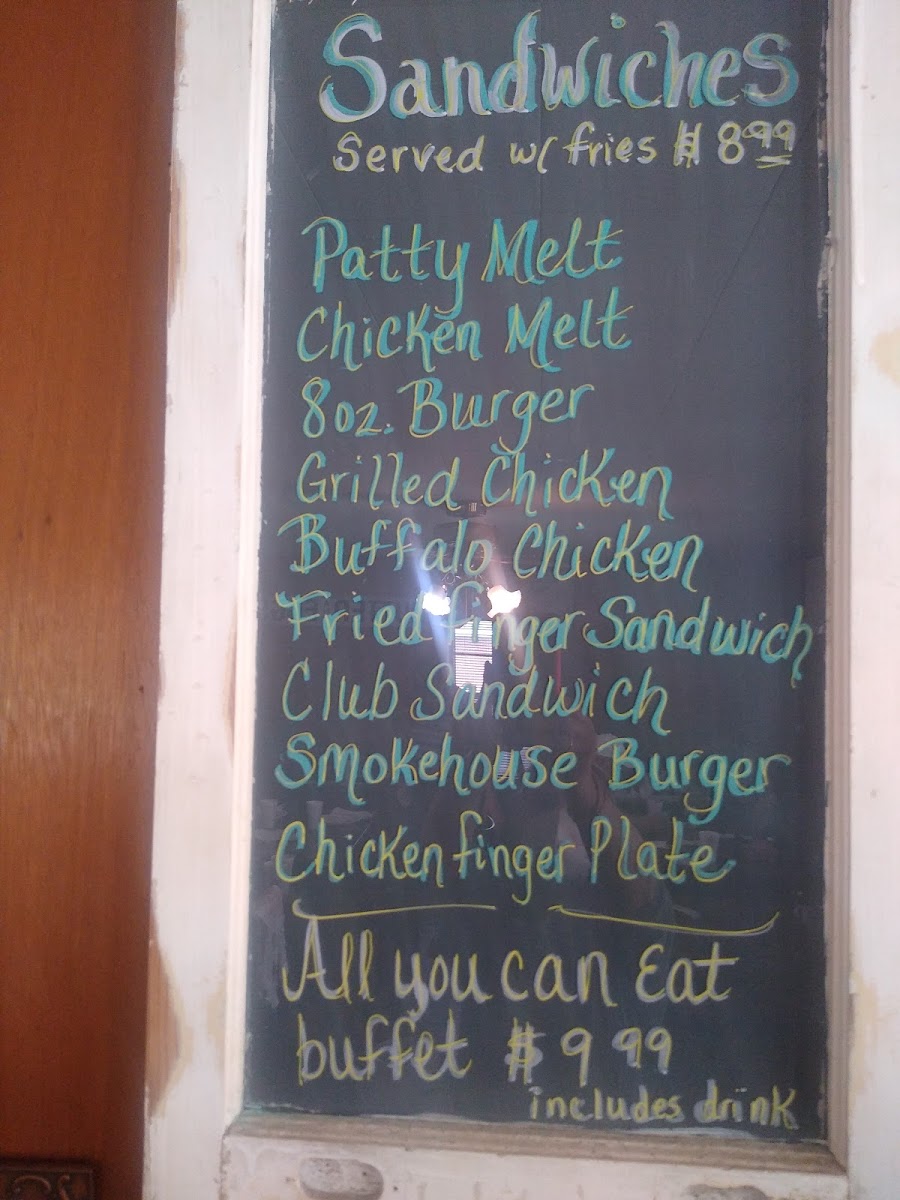 Sandwiches
Served w/ fries $8.99
Patty Melt
Chicken Melt
8oz. Burger
Grilled Chicken
Buffalo Chicken
Fried finger Sandwich
Club Sandwich
Smokehouse Burger
Chicken finger Plate
All you can Eat
buffet $9 99
includes drink